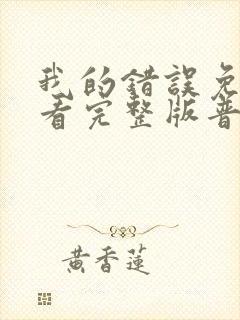 我的錯誤免
看完整版普
黃香蓮